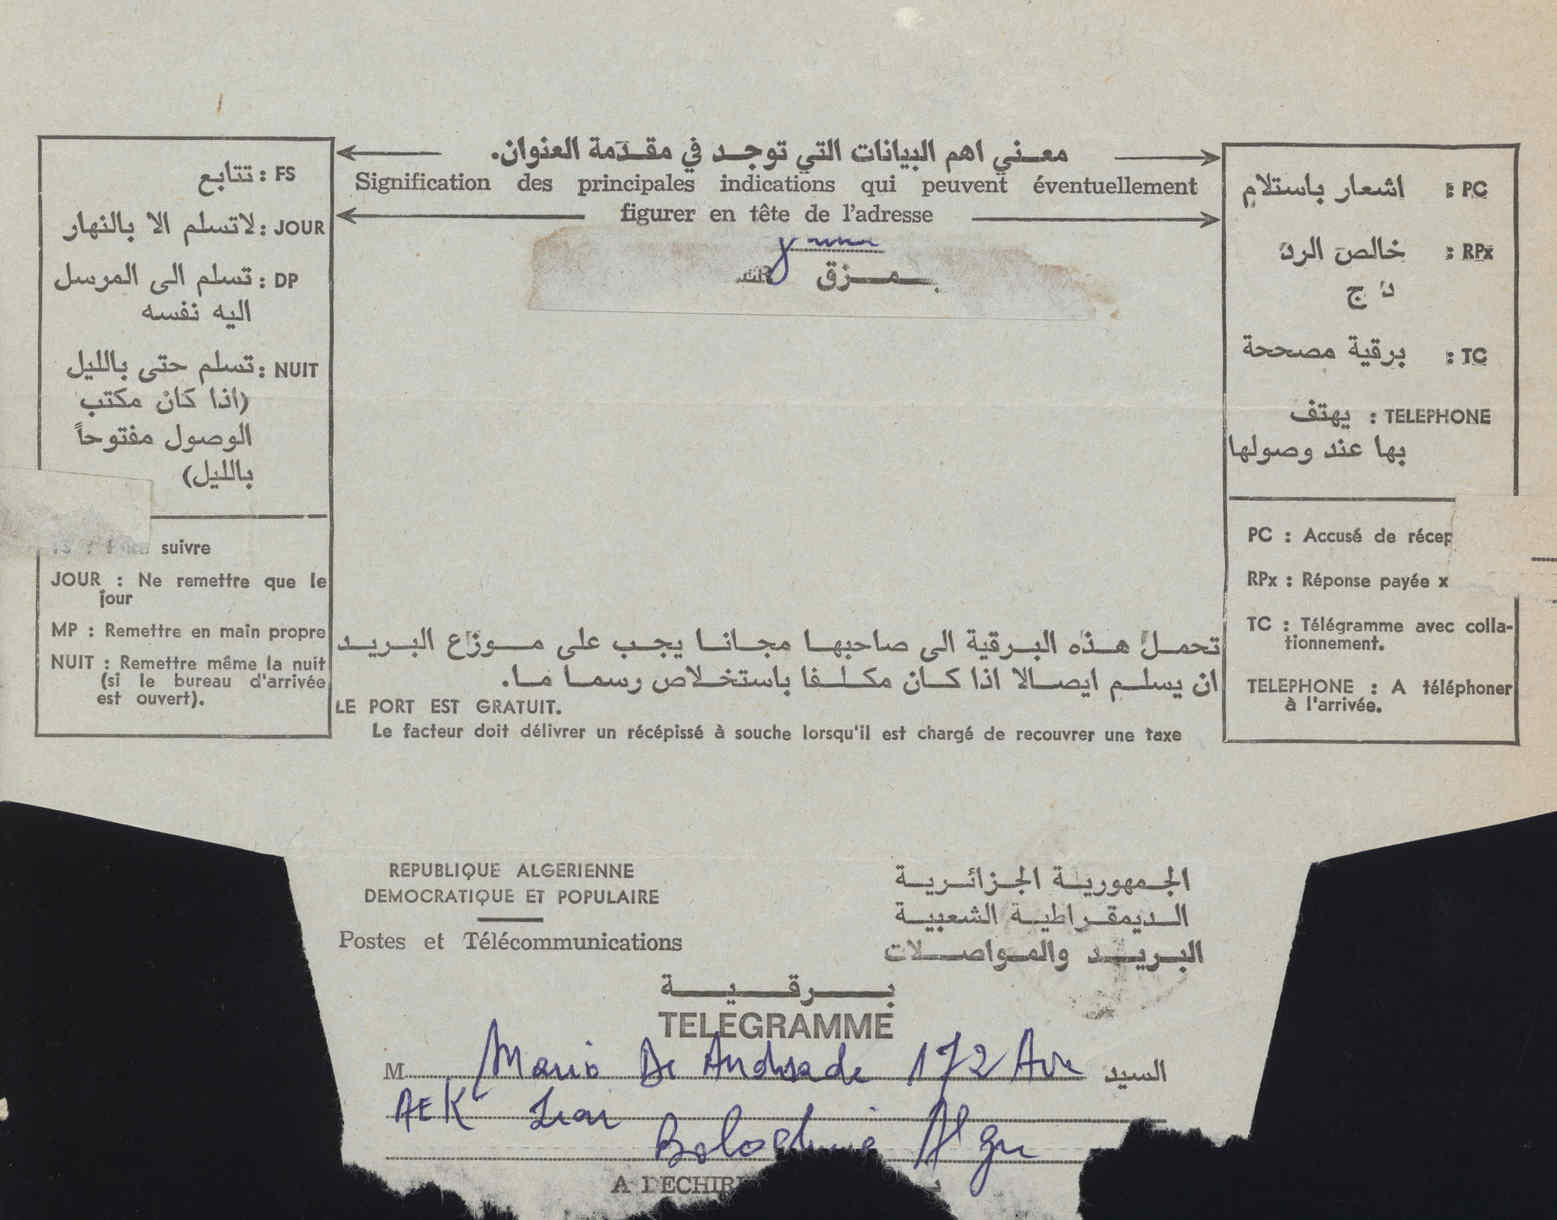 معـنـي اهم البيانات التي توجـد في مقـدّمة العنوان.
Signification des principales indications qui peuvent éventuellement
figurer en tête de l'adresse
بـمـزق
FS : تتابع
JOUR : لاتسلم الا بالنهار
DP : تسلم الى المرسل
اليه نفسه
NUIT : تسلم حتى بالليل
(اذا كان مكتب
الوصول مفتوحاً
بالليل)
suivre
JOUR : Ne remettre que le
jour
MP : Remettre en main propre
NUIT : Remettre même la nuit
(si le bureau d'arrivée
est ouvert).
PC : اشعار باستلام
RPx : خالص الردّ
دّ ج
TC : برقية مصححة
TELEPHONE : يهتف
بها عند وصولها
PC : Accusé de récep
RPx : Réponse payée x
TC : Télégramme avec colla-
tionnement.
TELEPHONE : A téléphoner
à l'arrivée.
تحمـلُ هـذه البـرقية الى صاحبهـا مجـانـا يجـب على مـوزّاع البـريـد
ان يسلـم ايصـالا اذا كـان مكلـفـا باستخـلاص رسمـا مـا.
LE PORT EST GRATUIT.
Le facteur doit délivrer un récépissé à souche lorsqu'il est chargé de recouvrer une taxe
REPUBLIQUE ALGERIENNE
DEMOCRATIQUE ET POPULAIRE
Postes et Télécommunications
الجـمهوريـة الجـزائـريـة
الـديمقـراطيـة الشعبيـة
البـريـد والمـواصـلات
بـرقـيـة
TELEGRAMME
M Mario De Andrade 172 Ave السيد
AEK
Bologhine Alger
A DECHIR